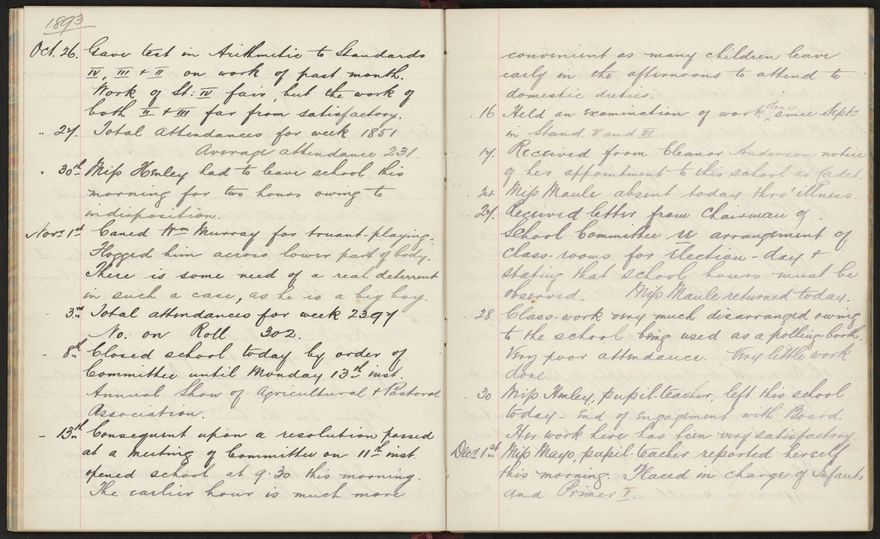 1893
Oct. 26. Gave test in Arithmetic to Standards
IV, III & II on work of past month.
Work of St. IV fair, but the work of
both II & III far from satisfactory.
" 27. Total attendances for week 1851
Average attendance 231.
" 30th Miss Henley had to leave school this
morning for two hours owing to
indisposition.
Nov. 1st Caned Wm Murray for truant-playing.
Flogged him across lower part of body.
There is some need of a real deterrent
in such a case, as he is a big boy.
3rd Total attendances for week 2397
No. on Roll 302.
8th Closed school today by order of
Committee until Monday 13th inst.
Annual Show of Agricultural & Pastoral
Association.
13th Consequent upon a resolution passed
at a meeting of Committee on 11th inst
opened school at 9.30 this morning.
The earlier hour is much more
convenient as many children leave
early in the afternoons to attend to
domestic duties.
16 Held an examination of work done since Sept.
in Stand. V and VI.
17. Received from Eleanor Anderson notice
of her appointment to this school as cadet.
24 Miss Maule absent today thro' illness.
27. Received letter from Chairman of
School Committee re arrangement of
class-rooms for Election-day &
stating that school hours must be
observed. Miss Maule returned today.
28 Class-work very much disarranged owing
to the school being used as a polling-booth.
Very poor attendance. Very little work
done.
30 Miss Henley, pupil-teacher, left this school
today - end of engagement with Board.
Her work here has been very satisfactory.
Dec. 1st Miss Mayo, pupil teacher reported herself
this morning. Placed in charge of Infants
and Primer I.